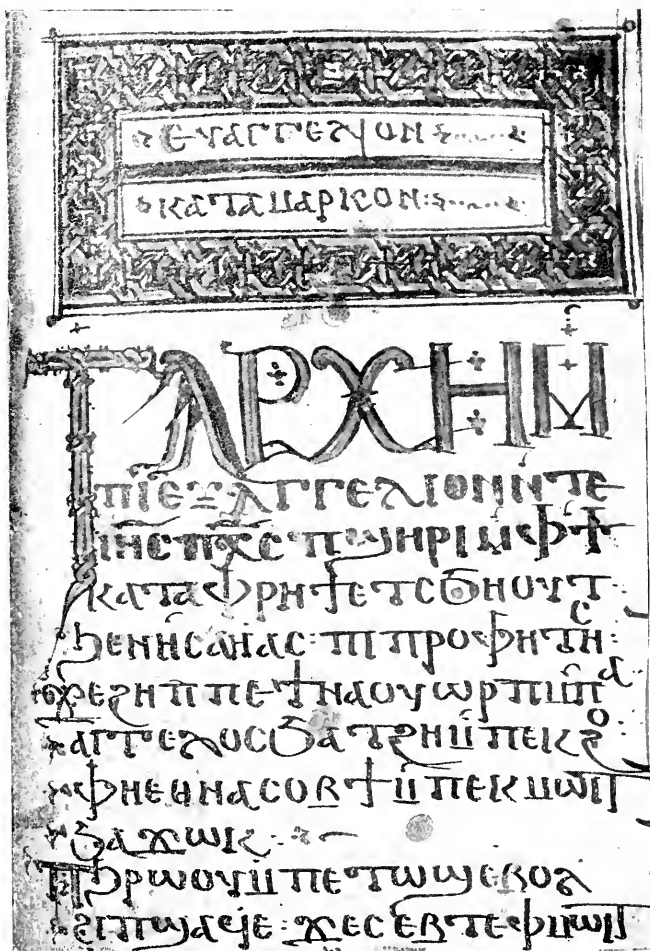 ⲉⲩⲁⲅⲅⲉⲗⲓⲟⲛ
ⲕⲁⲧⲁ ⲙⲁⲣⲕⲟⲛ
ⲧⲁⲣⲭⲏ ⲙ
ⲡⲓⲉⲩⲁⲅⲅⲉⲗⲓⲟⲛ ⲛ̀ⲧⲉ
ⲓⲏ̅ⲥ̅ ⲡⲭ̅ⲥ̅ ⲡϣⲏⲣⲓ ⲙ̀ⲫϯ
ⲕⲁⲧⲁ ⲫⲣⲏϯ ⲉⲧⲥϧⲏⲟⲩⲧ
ϧⲉⲛ ⲏⲥⲁⲏⲁⲥ ⲡⲓⲡⲣⲟⲫⲏⲧⲏⲥ
ϫⲉ ϩⲏⲡⲡⲉ ϯⲛⲁⲟⲩⲱⲣⲡ ⲙ̀ⲡⲁ
ⲁⲅⲅⲉⲗⲟⲥ ϧⲁⲧϩⲏ ⲙ̀ⲡⲉⲕϩⲟ
ⲫⲏⲉⲑⲛⲁⲥⲟⲃϯ ⲙ̀ⲡⲉⲕⲙⲱⲓⲧ
ϧⲁϫⲱⲕ
ⲡϧⲣⲱⲟⲩ ⲙ̀ⲡⲉⲧⲱϣ ⲉⲃⲟⲗ
ϩⲓ ⲡϣⲁϥⲉ ϫⲉ ⲥⲉⲃⲧⲉ ⲫⲙⲱⲓⲧ